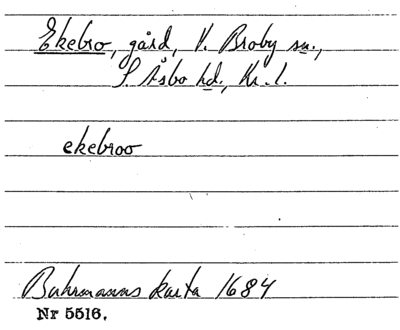 Ekebro, gård, V. Broby sn.,
S. Åsbo hd., Kr. l.
ekebroo
Buhrmanns karta 1684
Nr 5516.